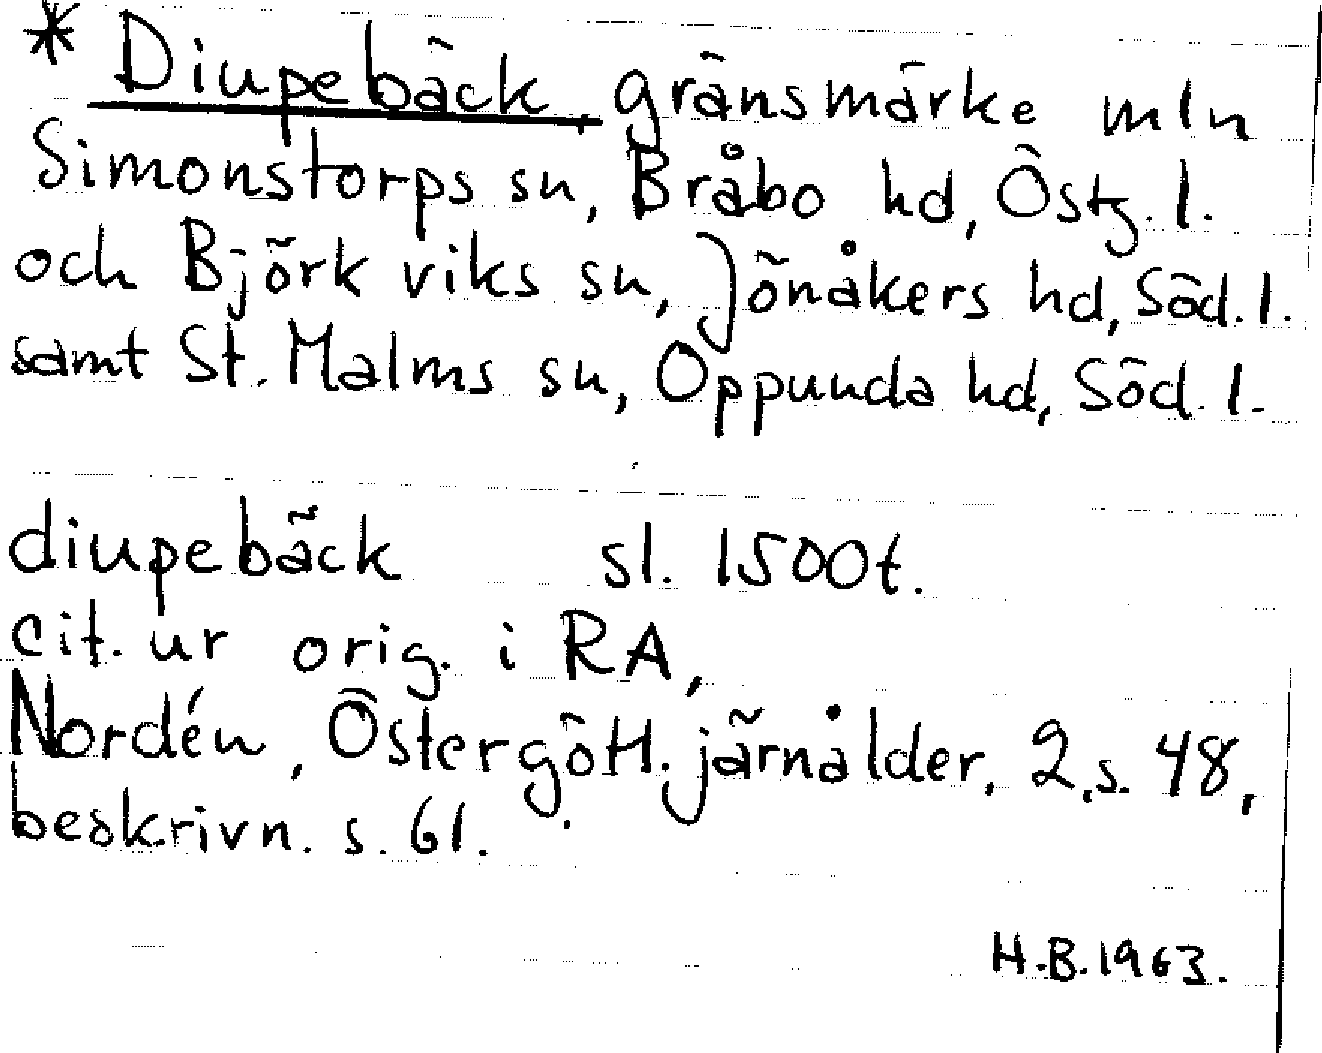 * Diupebäck, gränsmärke mln
Simonstorps sn, Bråbo hd, Östg. l.
och Björkviks sn, Jönåkers hd, Söd. l.
samt St. Malms sn, Oppunda hd, Söd. l.
diupebäck sl. 1500t.
cit. ur orig. i RA,
Nordén, Östergötl. järnålder, 2, s. 48,
beskrivn. s. 61.
H.B. 1963.